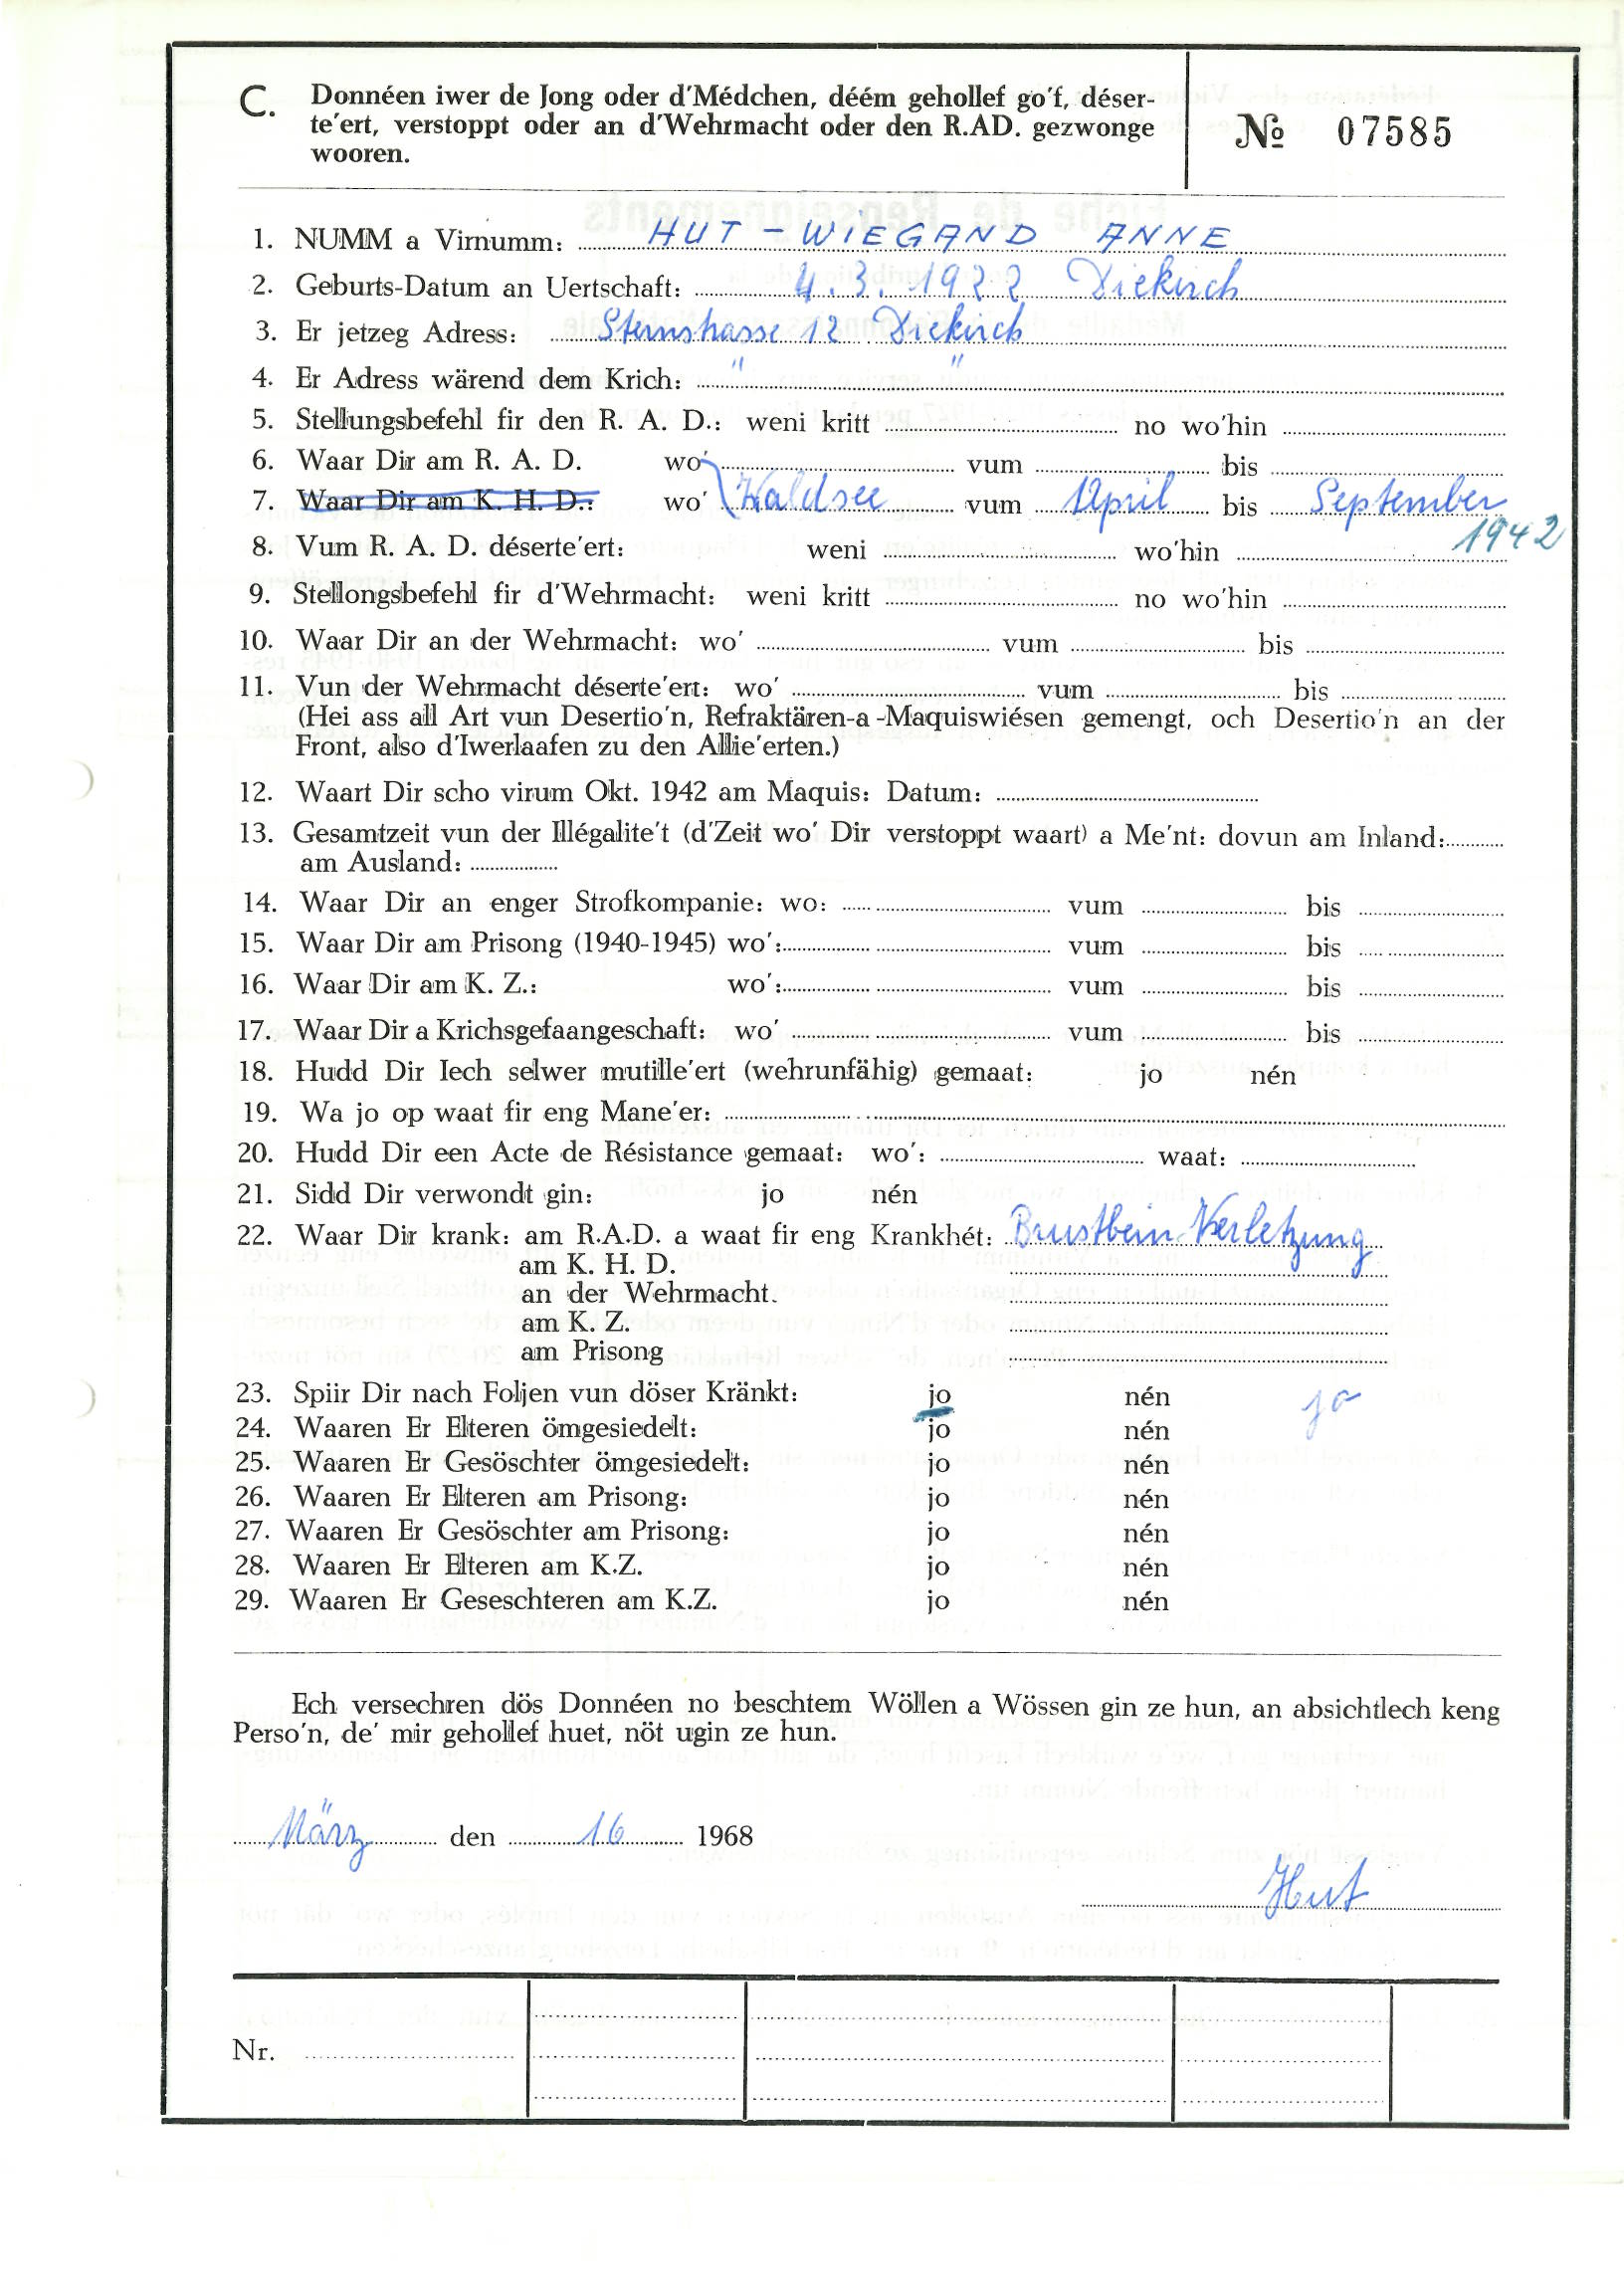 C. Donnéen iwer de Jong oder d'Médchen, déém gehollef go'f, déser-
te'ert, verstoppt oder an d'Wehrmacht oder den R.AD. gezwonge
wooren.
№ 07585
1. NUMM a Virnumm: HUT - WIEGAND ANNE
2. Geburts-Datum an Uertschaft: 4.3.1922 Diekirch
3. Er jetzeg Adress: Sternstrasse 12 Diekirch
4. Er Adress wärend dem Krich: " "
5. Stellungsbefehl fir den R. A. D.: weni kritt no wo'hin
6. Waar Dir am R. A. D. wo' vum bis
7. Waar Dir am K. H. D.: wo' Waldsee vum April bis September
1942
8. Vum R. A. D. déserte'ert: weni wo'hin
9. Stellongsbefehl fir d'Wehrmacht: weni kritt no wo'hin
10. Waar Dir an der Wehrmacht: wo' vum bis
11. Vun der Wehrmacht déserte'ert: wo' vum bis
(Hei ass all Art vun Desertio'n, Refraktären-a -Maquiswiésen gemengt, och Desertio'n an der
Front, also d'Iwerlaafen zu den Allie'erten.)
12. Waart Dir scho virum Okt. 1942 am Maquis: Datum:
13. Gesamtzeit vun der Illégalite't (d'Zeit wo' Dir verstoppt waart) a Me'nt: dovun am Inland:
am Ausland:
14. Waar Dir an enger Strofkompanie: wo: vum bis
15. Waar Dir am Prisong (1940-1945) wo': vum bis
16. Waar Dir am K. Z.: wo': vum bis
17. Waar Dir a Krichsgefaangeschaft: wo' vum bis
18. Hudd Dir Iech selwer mutille'ert (wehrunfähig) gemaat: jo nén
19. Wa jo op waat fir eng Mane'er:
20. Hudd Dir een Acte de Résistance gemaat: wo': waat:
21. Sidd Dir verwondt gin: jo nén
22. Waar Dir krank: am R.A.D. a waat fir eng Krankhét: Brustbein-Verletzung
am K. H. D.
an der Wehrmacht.
am K. Z.
am Prisong
23. Spiir Dir nach Foljen vun döser Kränkt: jo nén jo
24. Waaren Er Elteren ömgesiedelt: jo nén
25. Waaren Er Gesöschter ömgesiedelt: jo nén
26. Waaren Er Elteren am Prisong: jo nén
27. Waaren Er Gesöschter am Prisong: jo nén
28. Waaren Er Elteren am K.Z. jo nén
29. Waaren Er Geseschteren am K.Z. jo nén
Ech versechren dös Donnéen no beschtem Wöllen a Wössen gin ze hun, an absichtlech keng
Perso'n, de' mir gehollef huet, nöt ugin ze hun.
März den 16 1968
Hut
Nr.